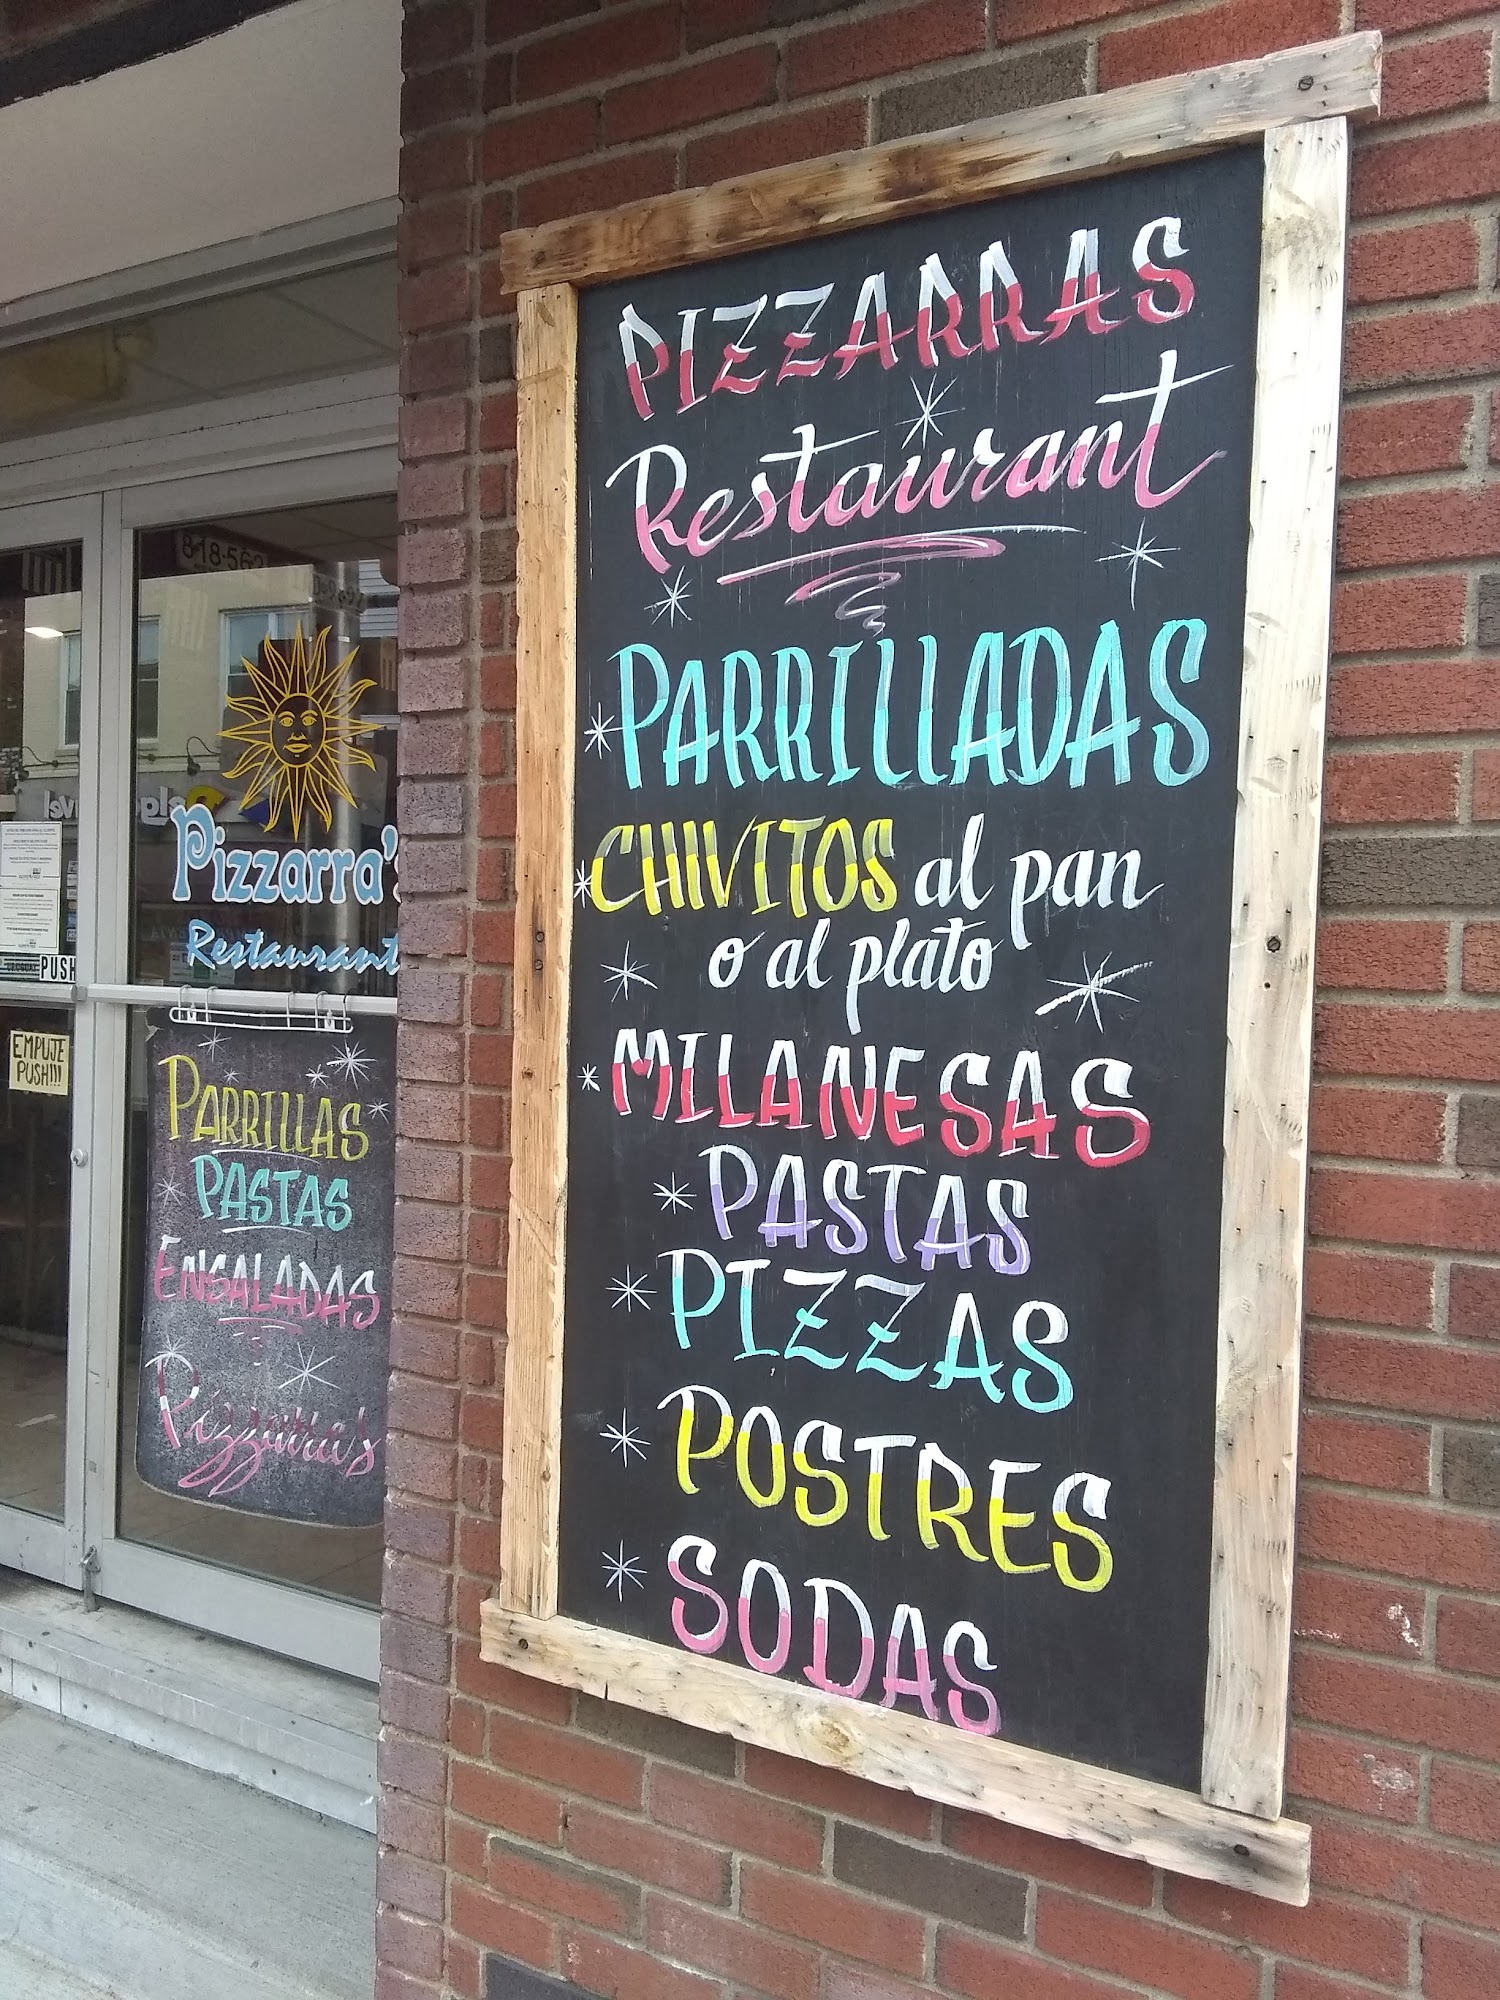 PIZZARRAS
Restaurant
PARRILLADAS
CHIVITOS al pan
o al plato
MILANESAS
PASTAS
PIZZAS
POSTRES
SODAS
818-562
Pizzarra's
Restaurant
PUSH
EMPUJE
PUSH!!!
PARRILLAS
PASTAS
ENSALADAS
Pizzarra's